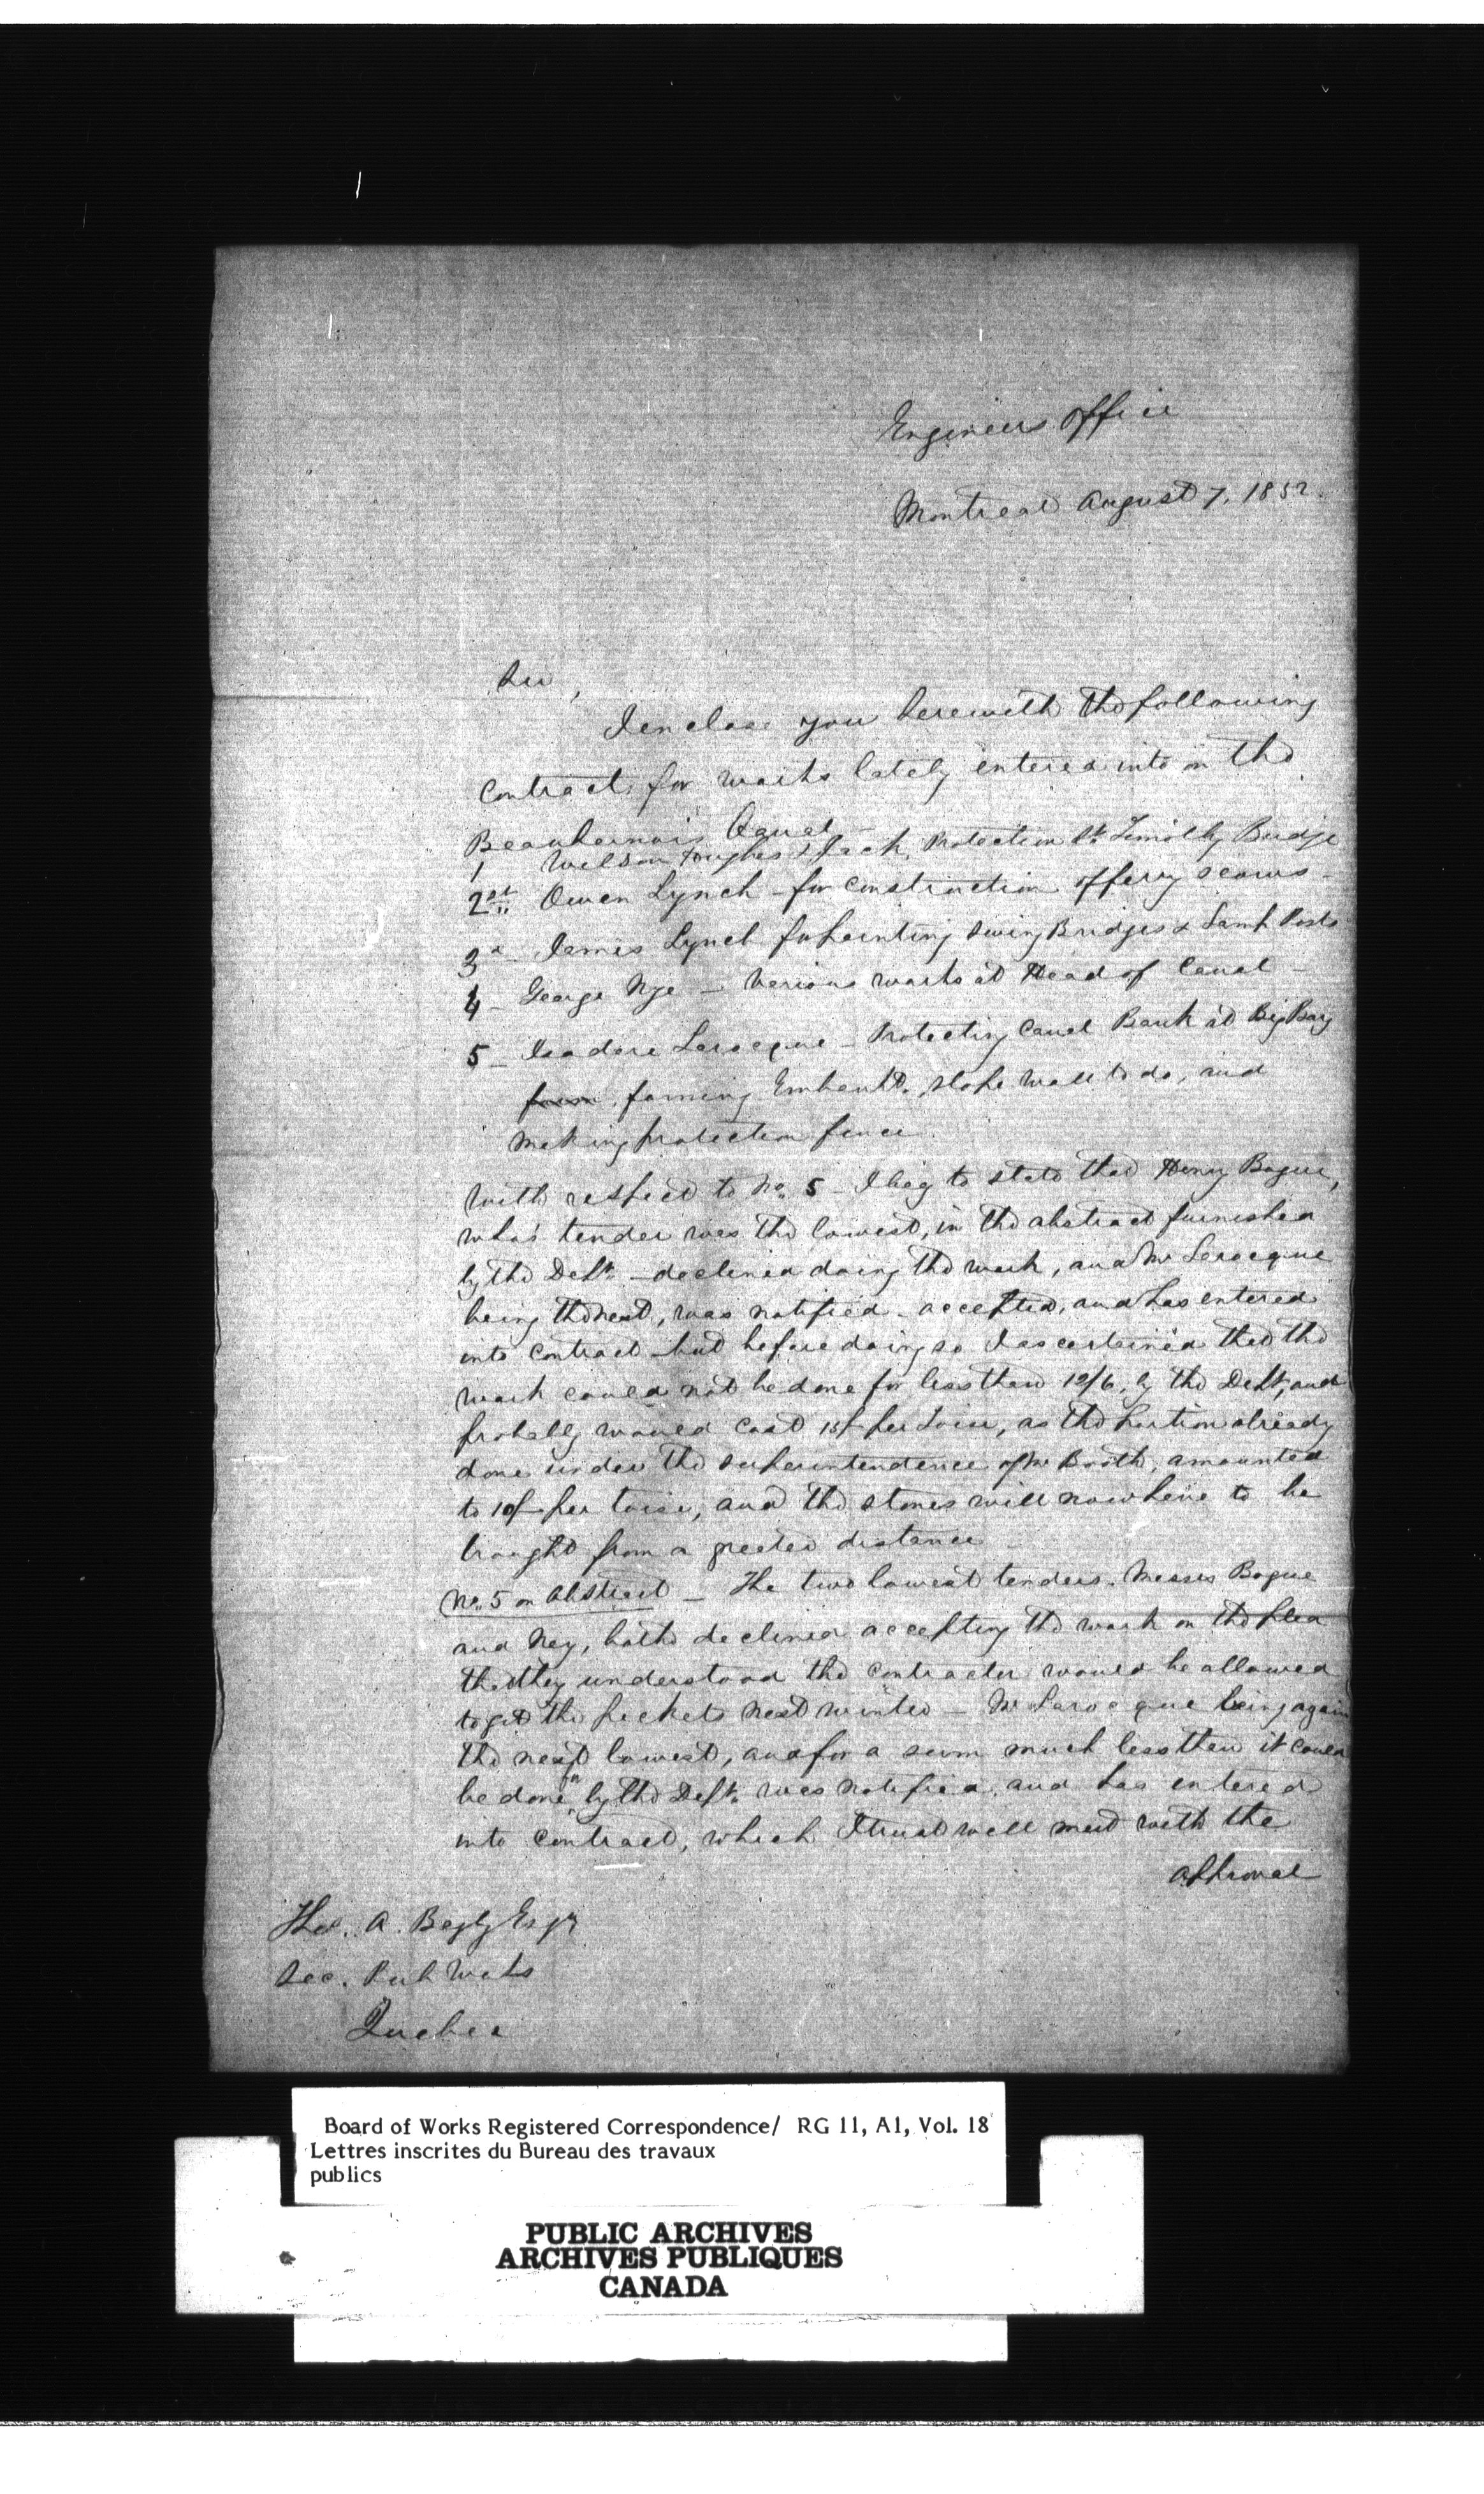 Engineers Office
Montreal August 7, 1852.
Sir,
I enclose you herewith the following
Contracts for works lately entered into on the
Beauharnois Canal -
1 Wilson Hughes & Protection St. Timothy Bridge
2nd Owen Lynch - for construction of ferry scows -
3d - James Lynch for painting Swing Bridges & Lamp Posts
4 - George Nye - Various works at Head of Canal -
5 - Isadore Larocque - Protecting Canal Bank at Big Bay
form, forming Embankt., slope wall to do, and
making protection fence.
With respect to No. 5 - I beg to state that Henry Bogue,
who's tender was the lowest, in the abstract furnished
by the Dept. - declined doing the work, and Mr Larocque
being the next, was notified - accepted, and has entered
into contract - but before doing so I ascertained that the
work could not be done for less than 12/6, by the Dept, and
probably would cost 15/- per toise, as the portion already
done under the superintendence of Mr Booth, amounted
to 10/- per toise, and the stones will now have to be
brought from a greater distance -
No. 5 on Abstract - The two lowest tenders. Messrs Bogue
and Ney, both declined accepting the work on the plea
that they understood the contractor would be allowed
to get the pickets next winter - Mr Larocque being again
the next lowest, and for a sum much less than it could
be done for by the Dept. was notified, and has entered
into contract, which I trust will meet with the
approval
Thos. A. Begly Esqr
Sec. Pub Works
Quebec
Board of Works Registered Correspondence/ RG 11, A1, Vol. 18
Lettres inscrites du Bureau des travaux
publics
PUBLIC ARCHIVES
ARCHIVES PUBLIQUES
CANADA